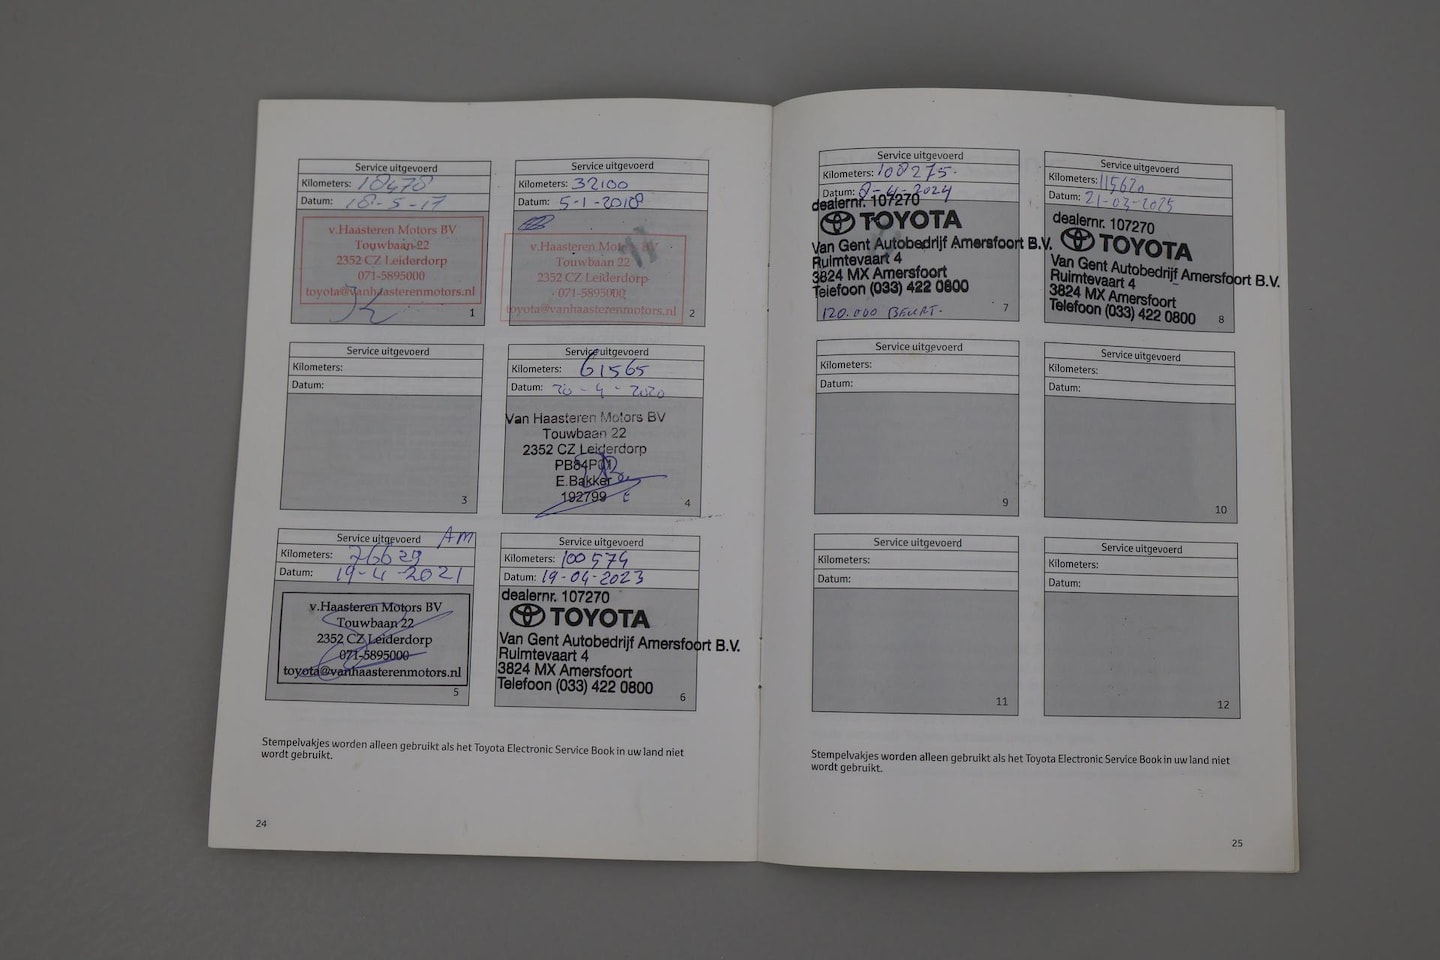 Service uitgevoerd
Kilometers: 18478
Datum: 18-5-17
v.Haasteren Motors BV
Touwbaan 22
2352 CZ Leiderdorp
071-5895000
toyota@vanhaasterenmotors.nl
1
Service uitgevoerd
Kilometers: 32100
Datum: 5-1-2018
v.Haasteren Motors BV
Touwbaan 22
2352 CZ Leiderdorp
071-5895000
toyota@vanhaasterenmotors.nl
2
Service uitgevoerd
Kilometers:
Datum:
3
Service uitgevoerd
Kilometers: 61565
Datum: 20-4-2020
Van Haasteren Motors BV
Touwbaan 22
2352 CZ Leiderdorp
PB84P01
E.Bakker
192799
4
Service uitgevoerd AM
Kilometers: 76629
Datum: 19-4-2021
v.Haasteren Motors BV
Touwbaan 22
2352 CZ Leiderdorp
071-5895000
toyota@vanhaasterenmotors.nl
5
Service uitgevoerd
Kilometers: 100574
Datum: 19-04-2023
dealernr. 107270
TOYOTA
Van Gent Autobedrijf Amersfoort B.V.
Ruimtevaart 4
3824 MX Amersfoort
Telefoon (033) 422 0800
6
Stempelvakjes worden alleen gebruikt als het Toyota Electronic Service Book in uw land niet
wordt gebruikt.
24
Service uitgevoerd
Kilometers: 108275.
Datum: 8-4-2024
dealernr. 107270
TOYOTA
Van Gent Autobedrijf Amersfoort B.V.
Ruimtevaart 4
3824 MX Amersfoort
Telefoon (033) 422 0800
120.000 BEURT.
7
Service uitgevoerd
Kilometers: 115620
Datum: 21-03-2025
dealernr. 107270
TOYOTA
Van Gent Autobedrijf Amersfoort B.V.
Ruimtevaart 4
3824 MX Amersfoort
Telefoon (033) 422 0800
8
Service uitgevoerd
Kilometers:
Datum:
9
Service uitgevoerd
Kilometers:
Datum:
10
Service uitgevoerd
Kilometers:
Datum:
11
Service uitgevoerd
Kilometers:
Datum:
12
Stempelvakjes worden alleen gebruikt als het Toyota Electronic Service Book in uw land niet
wordt gebruikt.
25